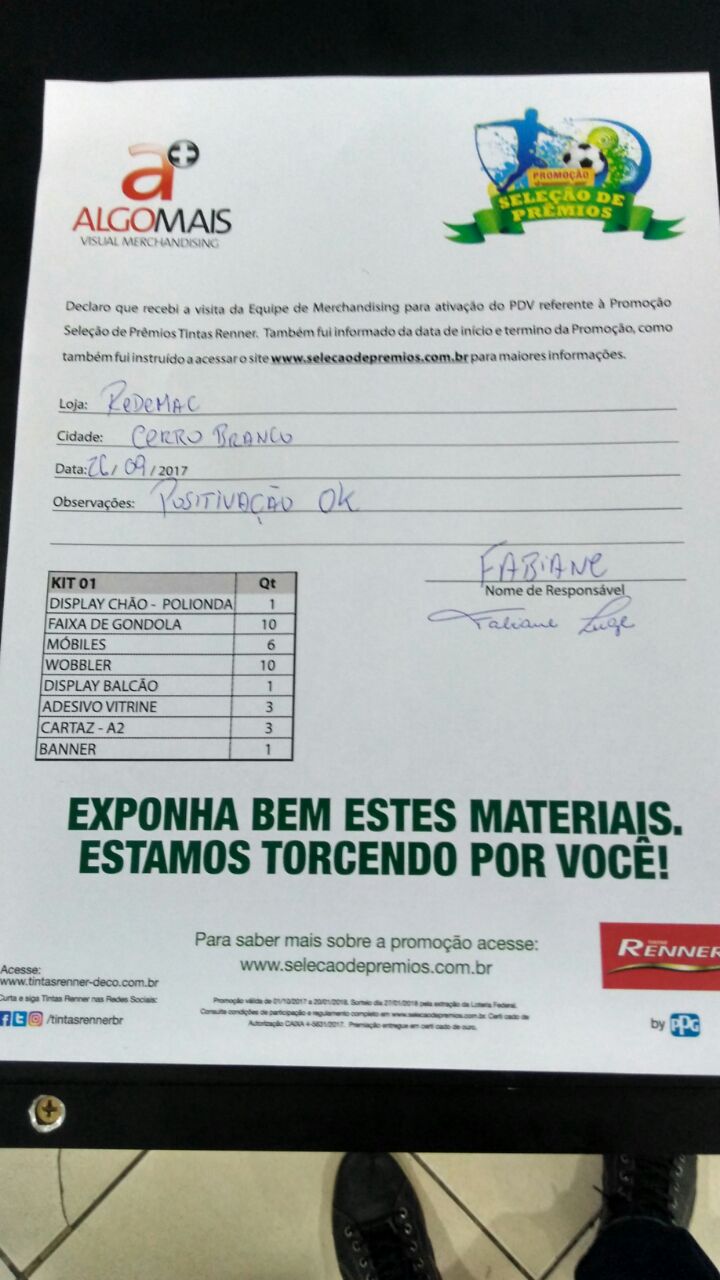 a+
ALGOMAIS
VISUAL MERCHANDISING
PROMOÇÃO
SELEÇÃO DE
PRÊMIOS
Declaro que recebi a visita da Equipe de Merchandising para ativação do PDV referente à Promoção
Seleção de Prêmios Tintas Renner. Também fui informado da data de início e termino da Promoção, como
também fui instruído a acessar o site www.selecaodepremios.com.br para maiores informações.
Loja: REDEMAC
Cidade: CERRO BRANCO
Data: 26/09/2017
Observações: POSITIVAÇÃO OK
FABIANE
Nome de Responsável
Fabiane
KIT 01 Qt
DISPLAY CHÃO - POLIONDA 1
FAIXA DE GONDOLA 10
MÓBILES 6
WOBBLER 10
DISPLAY BALCÃO 1
ADESIVO VITRINE 3
CARTAZ - A2 3
BANNER 1
EXPONHA BEM ESTES MATERIAIS.
ESTAMOS TORCENDO POR VOCÊ!
Para saber mais sobre a promoção acesse:
www.selecaodepremios.com.br
RENNER
Acesse:
www.tintasrenner-deco.com.br
Curta e siga Tintas Renner nas Redes Sociais:
/tintasrennerbr
Promoção válida de 01/10/2017 a 20/01/2018. Sorteio dia 27/01/2018 pela extração da Loteria Federal.
Consulte condições de participação e regulamento completo em www.selecaodepremios.com.br. Certi cado de
Autorização CAIXA 4-5631/2017. Premiação entregue em certi cado de ouro.
by PPG